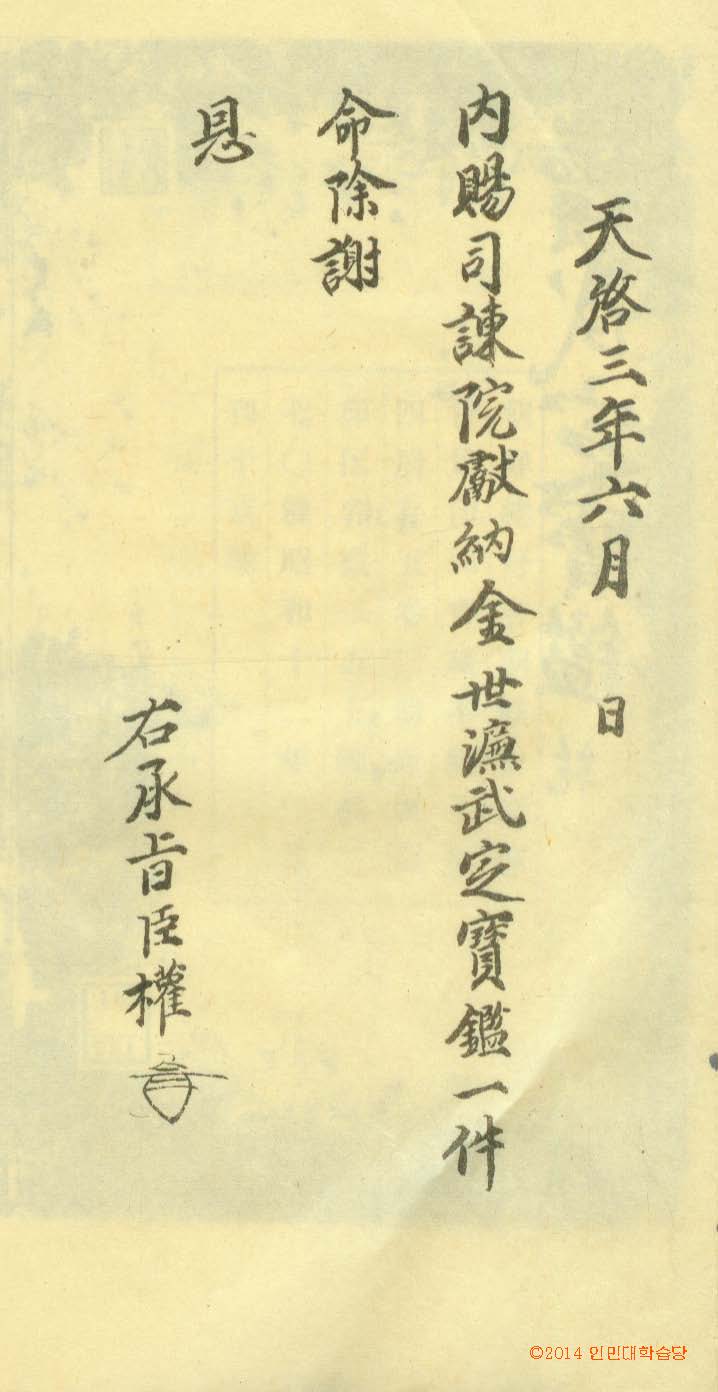 天啓三年六月　日
内賜司諫院獻納金世濂武定寶鑑一件
命除謝
恩
右承旨臣權
©2014 인민대학습당